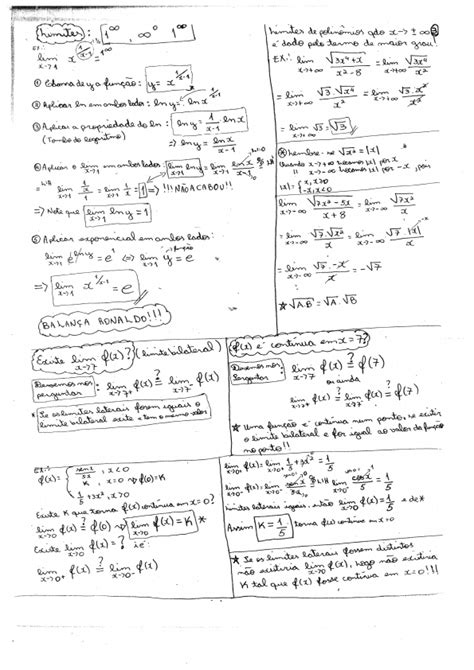 Limites: 1^∞, ∞^0, 1^∞
Ex:
lim x→1 x^(1/(x-1)) = 1^∞
① Chama de y a função: y = x^(1/(x-1))
② Aplicar ln em ambos lados: ln y = ln x^(1/(x-1))
③ Aplicar a propriedade do ln: ln y = 1/(x-1) · ln x
(Tombo do logaritmo)
=> ln y = ln x/(x-1)
④ Aplicar o lim x→1 em ambos lados: lim x→1 ln y = lim x→1 ln x/(x-1)
L'H = lim x→1 (1/x)/1 = lim x→1 1/x = 1 => !!!NÃO ACABOU!!!
=> Note que lim x→1 ln y = 1
⑤ Aplicar exponencial em ambos lados:
lim x→1 e^(ln y) = e^1 <=> lim x→1 y = e
função
=> lim x→1 x^(1/(x-1)) = e
BALANÇA RONALDO!!!
Limites de polinômios qdo x→ ± ∞
é dado pelo termo de maior grau!
EX: lim x→+∞ √(3x⁴+x)/(x²-8) = lim x→+∞ √(3x⁴)/x²
= lim x→+∞ √3·√x⁴/x² = lim x→+∞ √3·x²/x²
= lim x→+∞ √3 = √3
* lembre-se √x² = |x|
Quando x→+∞ trocamos |x| por x
" x→-∞ trocamos |x| por -x, pois
|x| = { x, x≥0
-x, x<0
lim x→-∞ √(7x²-5x)/(x+8) = lim x→-∞ √(7x²)/x
= lim x→-∞ √7·√x²/x = lim x→-∞ √7·|x|/x
-x
= lim x→-∞ √7·-x/x = -√7
★ √A·B = √A·√B
Existe lim x→7 f(x)? (limite bilateral)
Devemos nos perguntar: lim x→7⁺ f(x) =? lim x→7⁻ f(x)
* Se os limites laterais forem iguais o
limite bilateral existe e tem o mesmo valor
f(x) é contínua em x=7?
Devemos nos perguntar lim x→7 f(x) =? f(7)
ou ainda
lim x→7⁺ f(x) =? lim x→7⁻ f(x) =? f(7)
★ Uma função é contínua num ponto, se existir
o limite bilateral e for igual ao valor da função
no ponto!!
EX:
f(x) = { sen x/5x, x<0
K, x=0 → f(0)=K
1/5 + 3x², x>0
Existe K que torna f(x) contínua em x=0?
lim x→0 f(x) =? f(0) → lim x→0 f(x) = K *
Existe lim x→0 f(x) = ? ie:
lim x→0⁺ f(x) =? lim x→0⁻ f(x)
lim x→0⁺ f(x) = lim x→0⁺ 1/5 + 3x² = 1/5
lim x→0⁻ f(x) = lim x→0⁻ sen x/5x = L'H lim x→0⁻ cos x/5 = 1/5
limites laterais iguais, então lim x→0 f(x) = 1/5 e de *
Assim K = 1/5 torna f(x) contínua em x=0
★ Se os limites laterais fossem distintos
não existiria lim x→0 f(x), logo não existiria
K tal que f(x) fosse contínua em x=0!!!